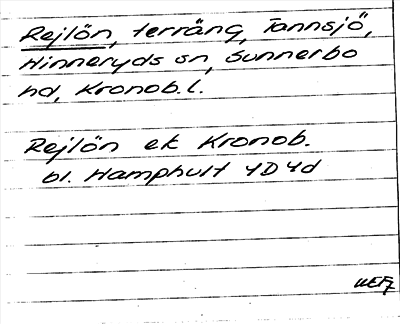 Rejlön, terräng, Tannsjö,
Hinneryds sn, Sunnerbo
hd, Kronob.l.
Rejlön ek Kronob.
bl. Hamphult 4D4d